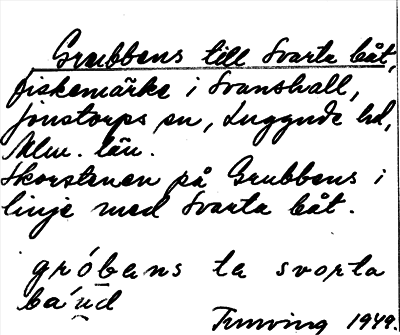 Grubbens till Svarta båt,
fiskemärke i Svanshall,
Jonstorps sn, Luggude hd,
Mlm. län.
Skorstenen på Grubbens i
linje med Svarta båt.
gróbans ta svorta
bá́ud
1949.